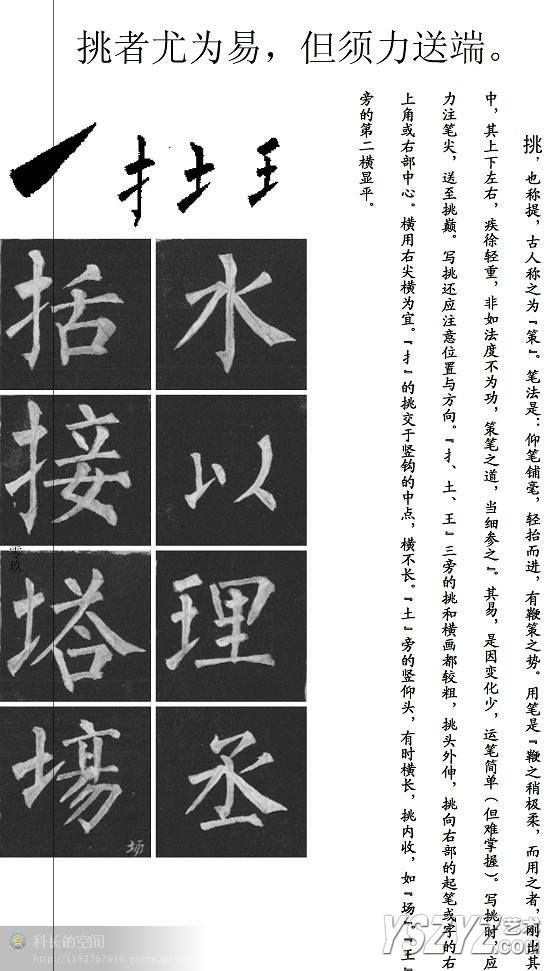 挑者尤为易，但须力送端。
挑，也称提，古人称之为『策』。笔法是：仰笔铺毫，轻抬而进，有鞭策之势。用笔是『鞭之稍极柔，而用之者，刚出其
中，其上下左右，疾徐轻重，非如法度不为功，策笔之道，当细参之』。其易，是因变化少，运笔简单（但难掌握）。写挑时，应
力注笔尖，送至挑巅。写挑还应注意位置与方向。『扌、土、王』三旁的挑和横画都较粗，挑头外伸，挑向右部的起笔或字的右
上角或右部中心。横用右尖横为宜。『扌』的挑交于竖钩的中点，横不长。『土』旁的竖仰头，有时横长，挑内收，如『场』。『王』
旁的第二横显平。
扌土王
水
括
以
接
理
塔
丞
場
场
零玖
科长的空间
YSZYZ艺术